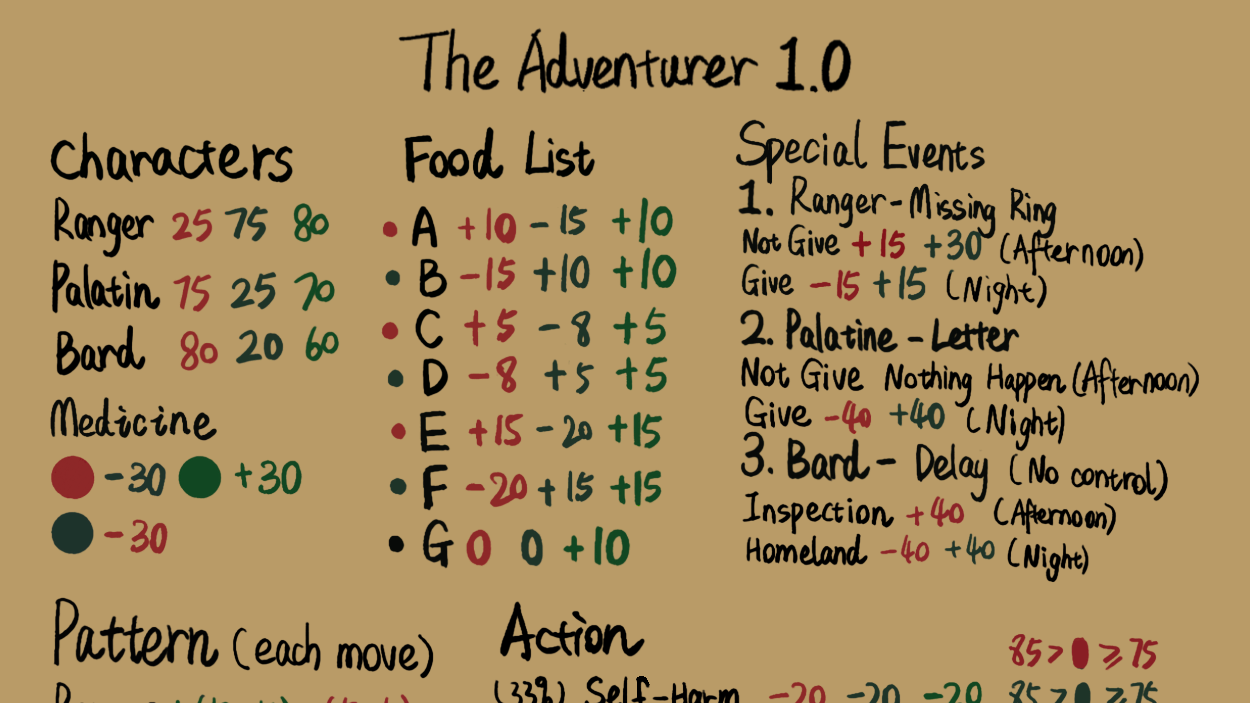 The Adventurer 1.0
Characters
Ranger 25 75 80
Palatin 75 25 70
Bard 80 20 60
Medicine
-30 +30
-30
Food List
A +10 -15 +10
B -15 +10 +10
C +5 -8 +5
D -8 +5 +5
E +15 -20 +15
F -20 +15 +15
G 0 0 +10
Special Events
1. Ranger - Missing Ring
Not Give +15 +30 (Afternoon)
Give -15 +15 (Night)
2. Palatine - Letter
Not Give Nothing Happen (Afternoon)
Give -40 +40 (Night)
3. Bard - Delay (No control)
Inspection +40 (Afternoon)
Homeland -40 +40 (Night)
Pattern (each move)
Action
85 > ⩾ 75
(33%) Self-Harm -20 -20 -20 85 > ⩾ 75